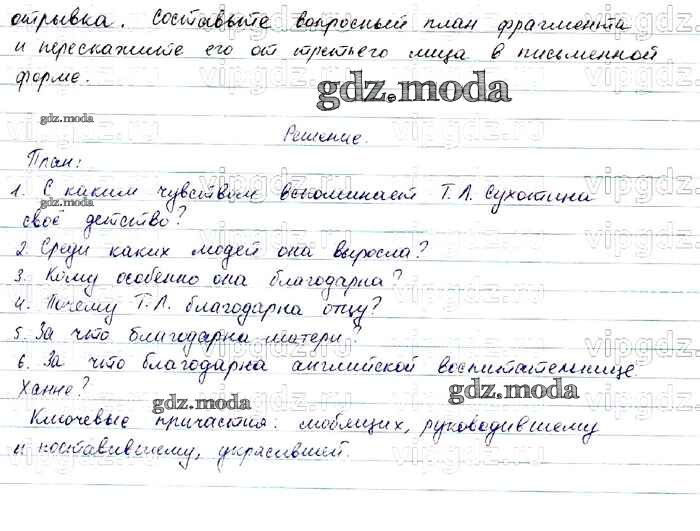 отрывка. Составьте вопросный план фрагмента
и перескажите его от третьего лица в письменной
форме.
gdz.moda
gdz.moda
Решение.
План:
1. С каким чувством вспоминает Т.Л. Сухотина
gdz.moda
своё детство?
2. Среди каких людей она выросла?
3. Кому особенно она благодарна?
4. Почему Т.Л. благодарна отцу?
5. За что благодарна матери?
6. За что благодарна английской воспитательнице
Ханне?
gdz.moda
gdz.moda
Ключевые причастия: любящих, руководившему
и поставившему, украсившей.